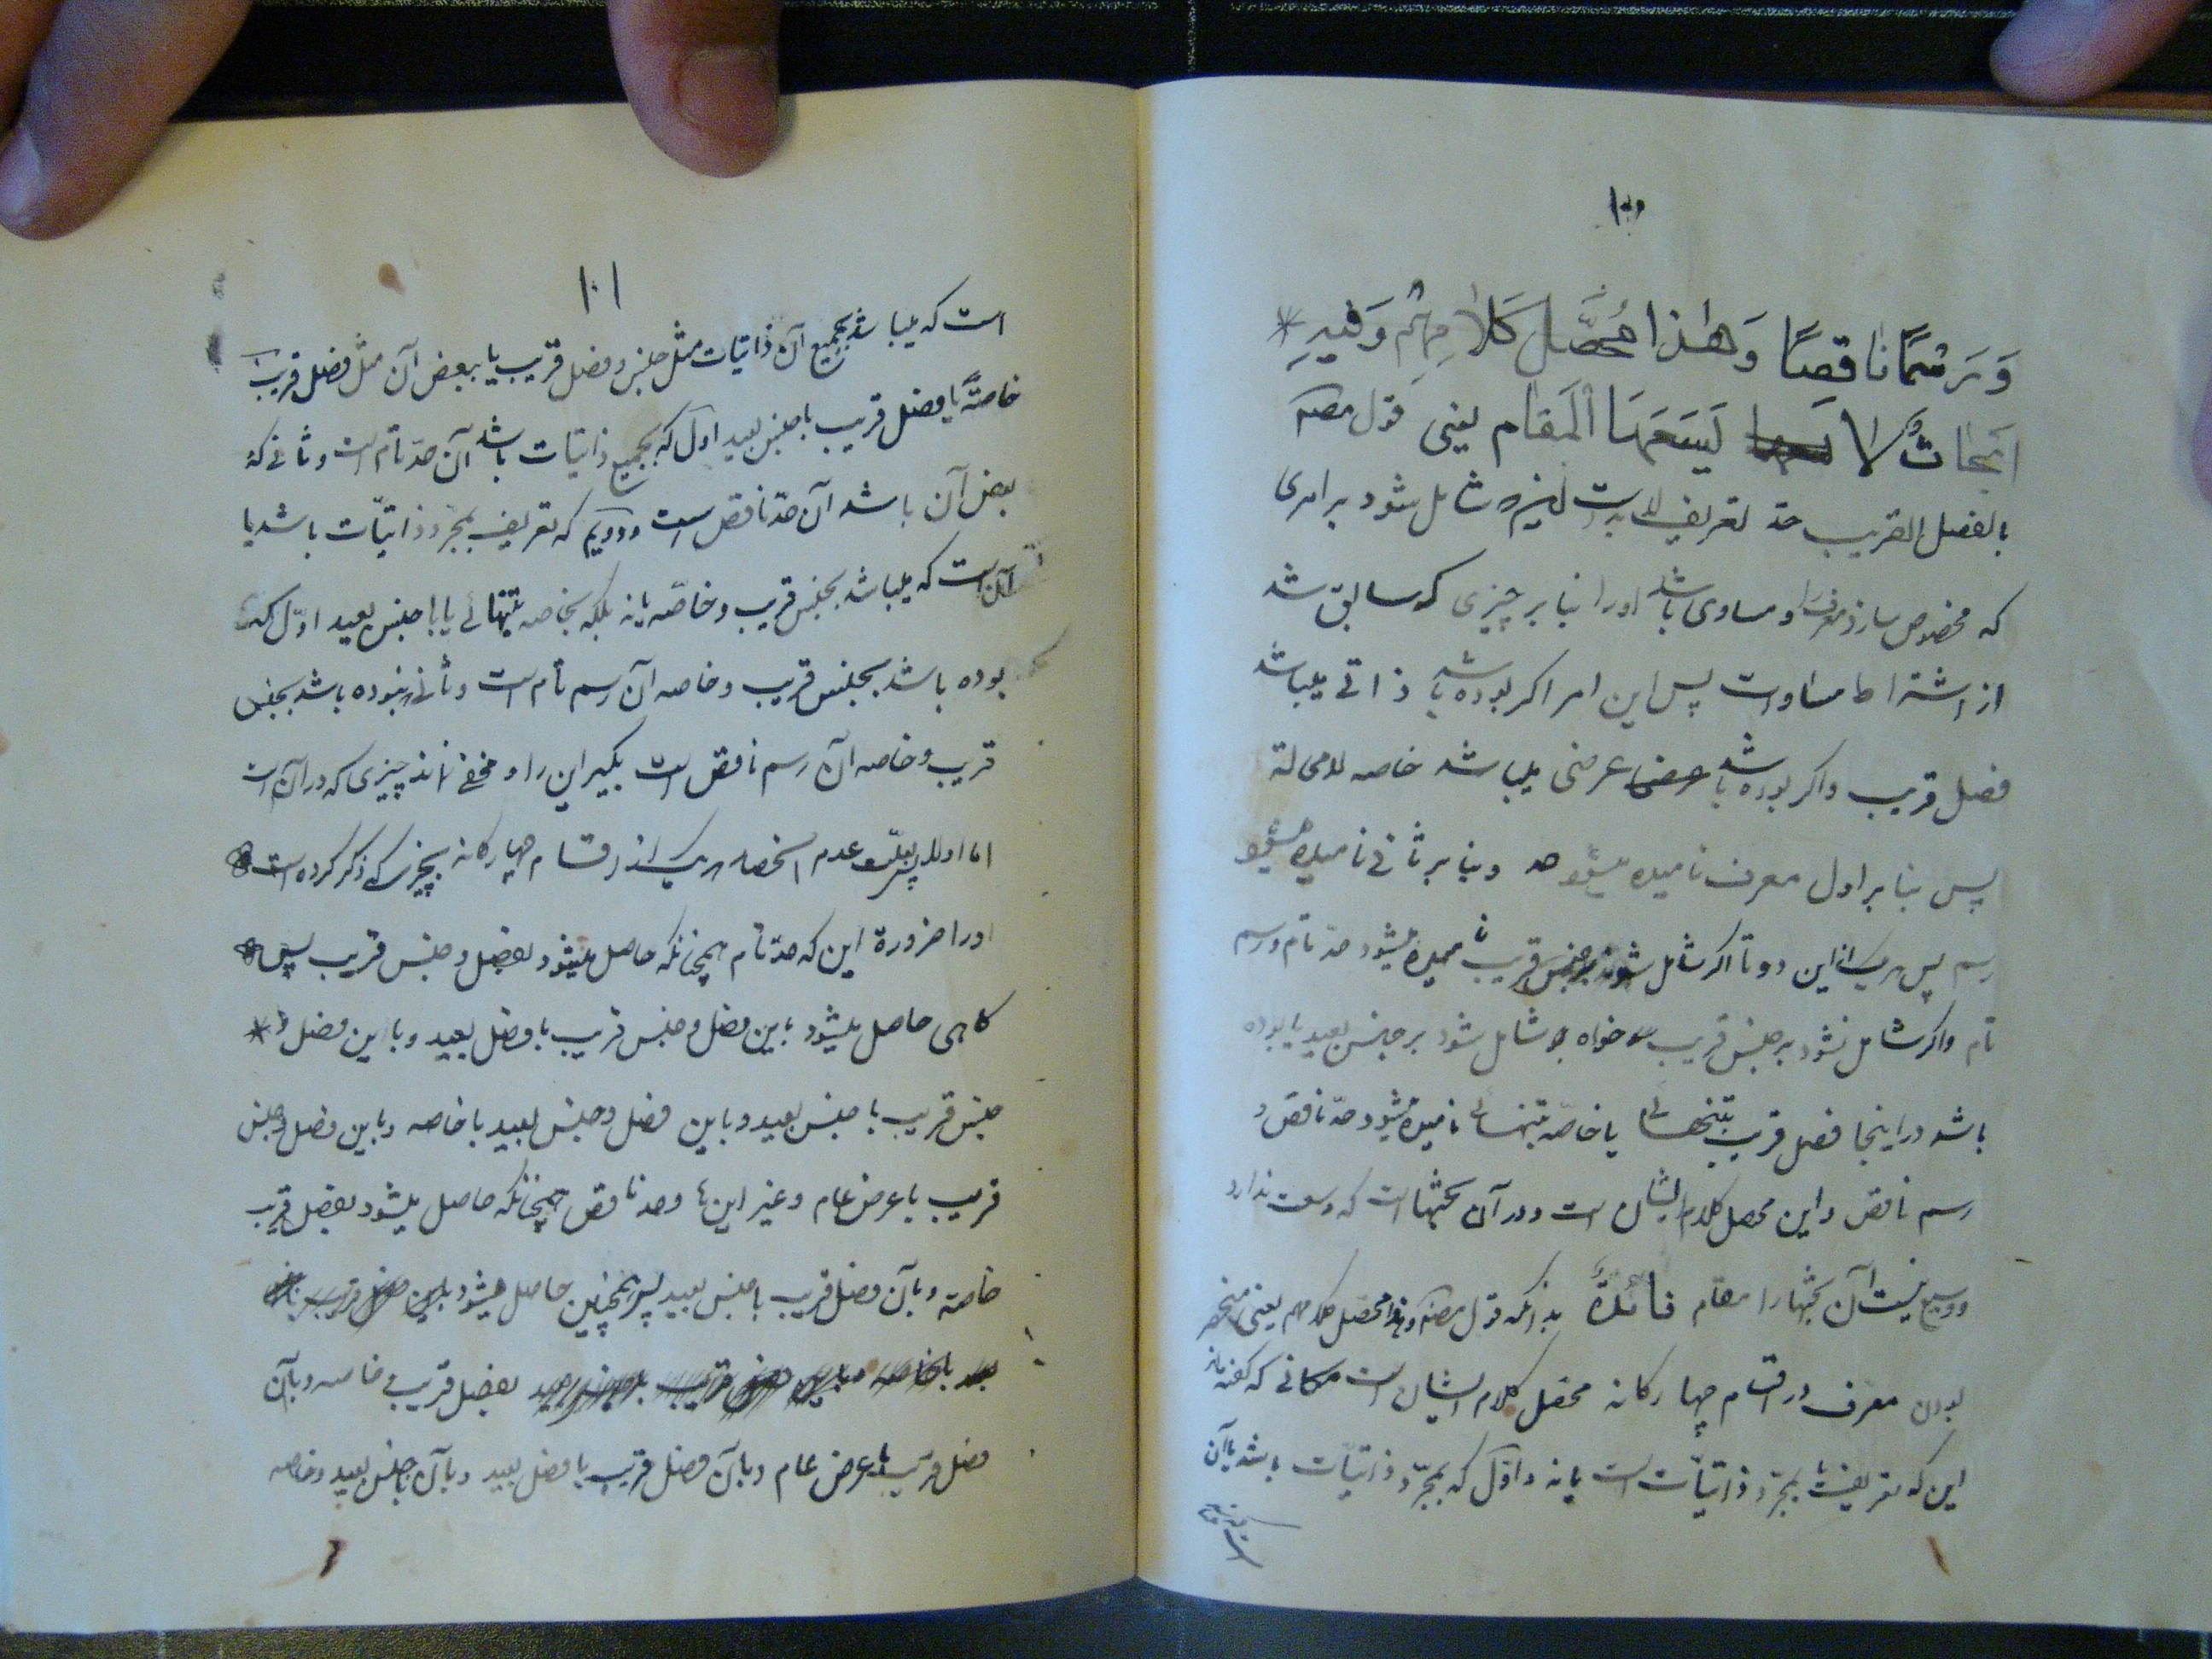 ۱۰۰
وَرَسْمًا نَاقِصًا وَهٰذَا مُحَصَّلُ كَلَامِهِمْ وَفِيهِ
اَبْحَاثٌ لَا يَسَعَهَا الْمَقَام یعنی قول مصنّف
بالفصل القریب حدّ تعریف لابد است اینکه شامل شود بر امری
که مخصوص سازد معرَّف را و مساوی باشد او را بنا بر چیزی که سابق شد
از اشتراط مساوات پس این امر اکر بوده باشد ذاتی میباشد
فصل قریب و اکر بوده باشد عرضی میباشد خاصه لا محاله
پس بنا بر اول معرف نامیده میشود حد و بنا بر ثانی نامیده میشود
رسم پس هریک از این دو تا اکر شامل شوند بر جنس قریب نامیده میشود حدّ تام و رسم
تام و اکر شامل نشود بر جنس قریب خواه شامل شود بر جنس بعید یا بوده
باشد در اینجا فصل قریب بتنهائی یا خاصّه بتنهائی نامیده میشود حدّ ناقص و
رسم ناقص و این محصل کلام ایشان است و در آن بحثها است که وسعت ندارد
و وسیع نیست آن بحثها را مقام فائدةٌ بدانکه قول مصنف و هذا محصّل کلامهم یعنی منحصر
بودن معرّف در اقسام چهارکانه محصّل کلام ایشان است که کفته‌اند
این که تعریف یا بمجرّد ذاتیّات است یا نه و اوّل که بمجرّد ذاتیّات باشد یا آن
۱۰۱
است که میباشد بجمیع آن ذاتیات مثل جنس و فصل قریب یا ببعض آن مثل فصل قریب
خاصّةً یا فصل قریب با جنس بعید اول که بجمیع ذاتیات باشد آن حدّ تام است و ثانی که
بعض آن باشد آن حدّ ناقص است و دویم که تعریف بمجرّد ذاتیّات باشد یا
آن است که میباشد بجنس قریب و خاصّه یا نه بلکه بخاصه بتنهائی یا با جنس بعید اوّل که
بوده باشد بجنس قریب و خاصه آن رسم تام است و ثانی نبوده باشد بجنس
قریب و خاصه آن رسم ناقص است بکیر این را و مخفی نماند چیزی که در آن است
اما اولا پس بعلّت عدم انحصار هریک از اقسام چهارکانه بچیزی که ذکر کرده است
او را ضرورة این که حدّ تام همچنانکه حاصل میشود بفصل و جنس قریب پس
کاهی حاصل میشود باین فصل و جنس قریب با فصل بعید و باین فصل و
جنس قریب با جنس بعید و باین فصل و جنس بعید با خاصه و باین فصل و جنس
قریب با عرض عام و غیر اینها و حد ناقص همچنانکه حاصل میشود بفصل قریب
خاصّه و بآن فصل قریب با جنس بعید پس همچنین حاصل میشود
بفصل قریب و خاصه و بآن
فصل قریب با عرض عام و بآن فصل قریب با فصل بعید و بآن با جنس بعید و خاصه